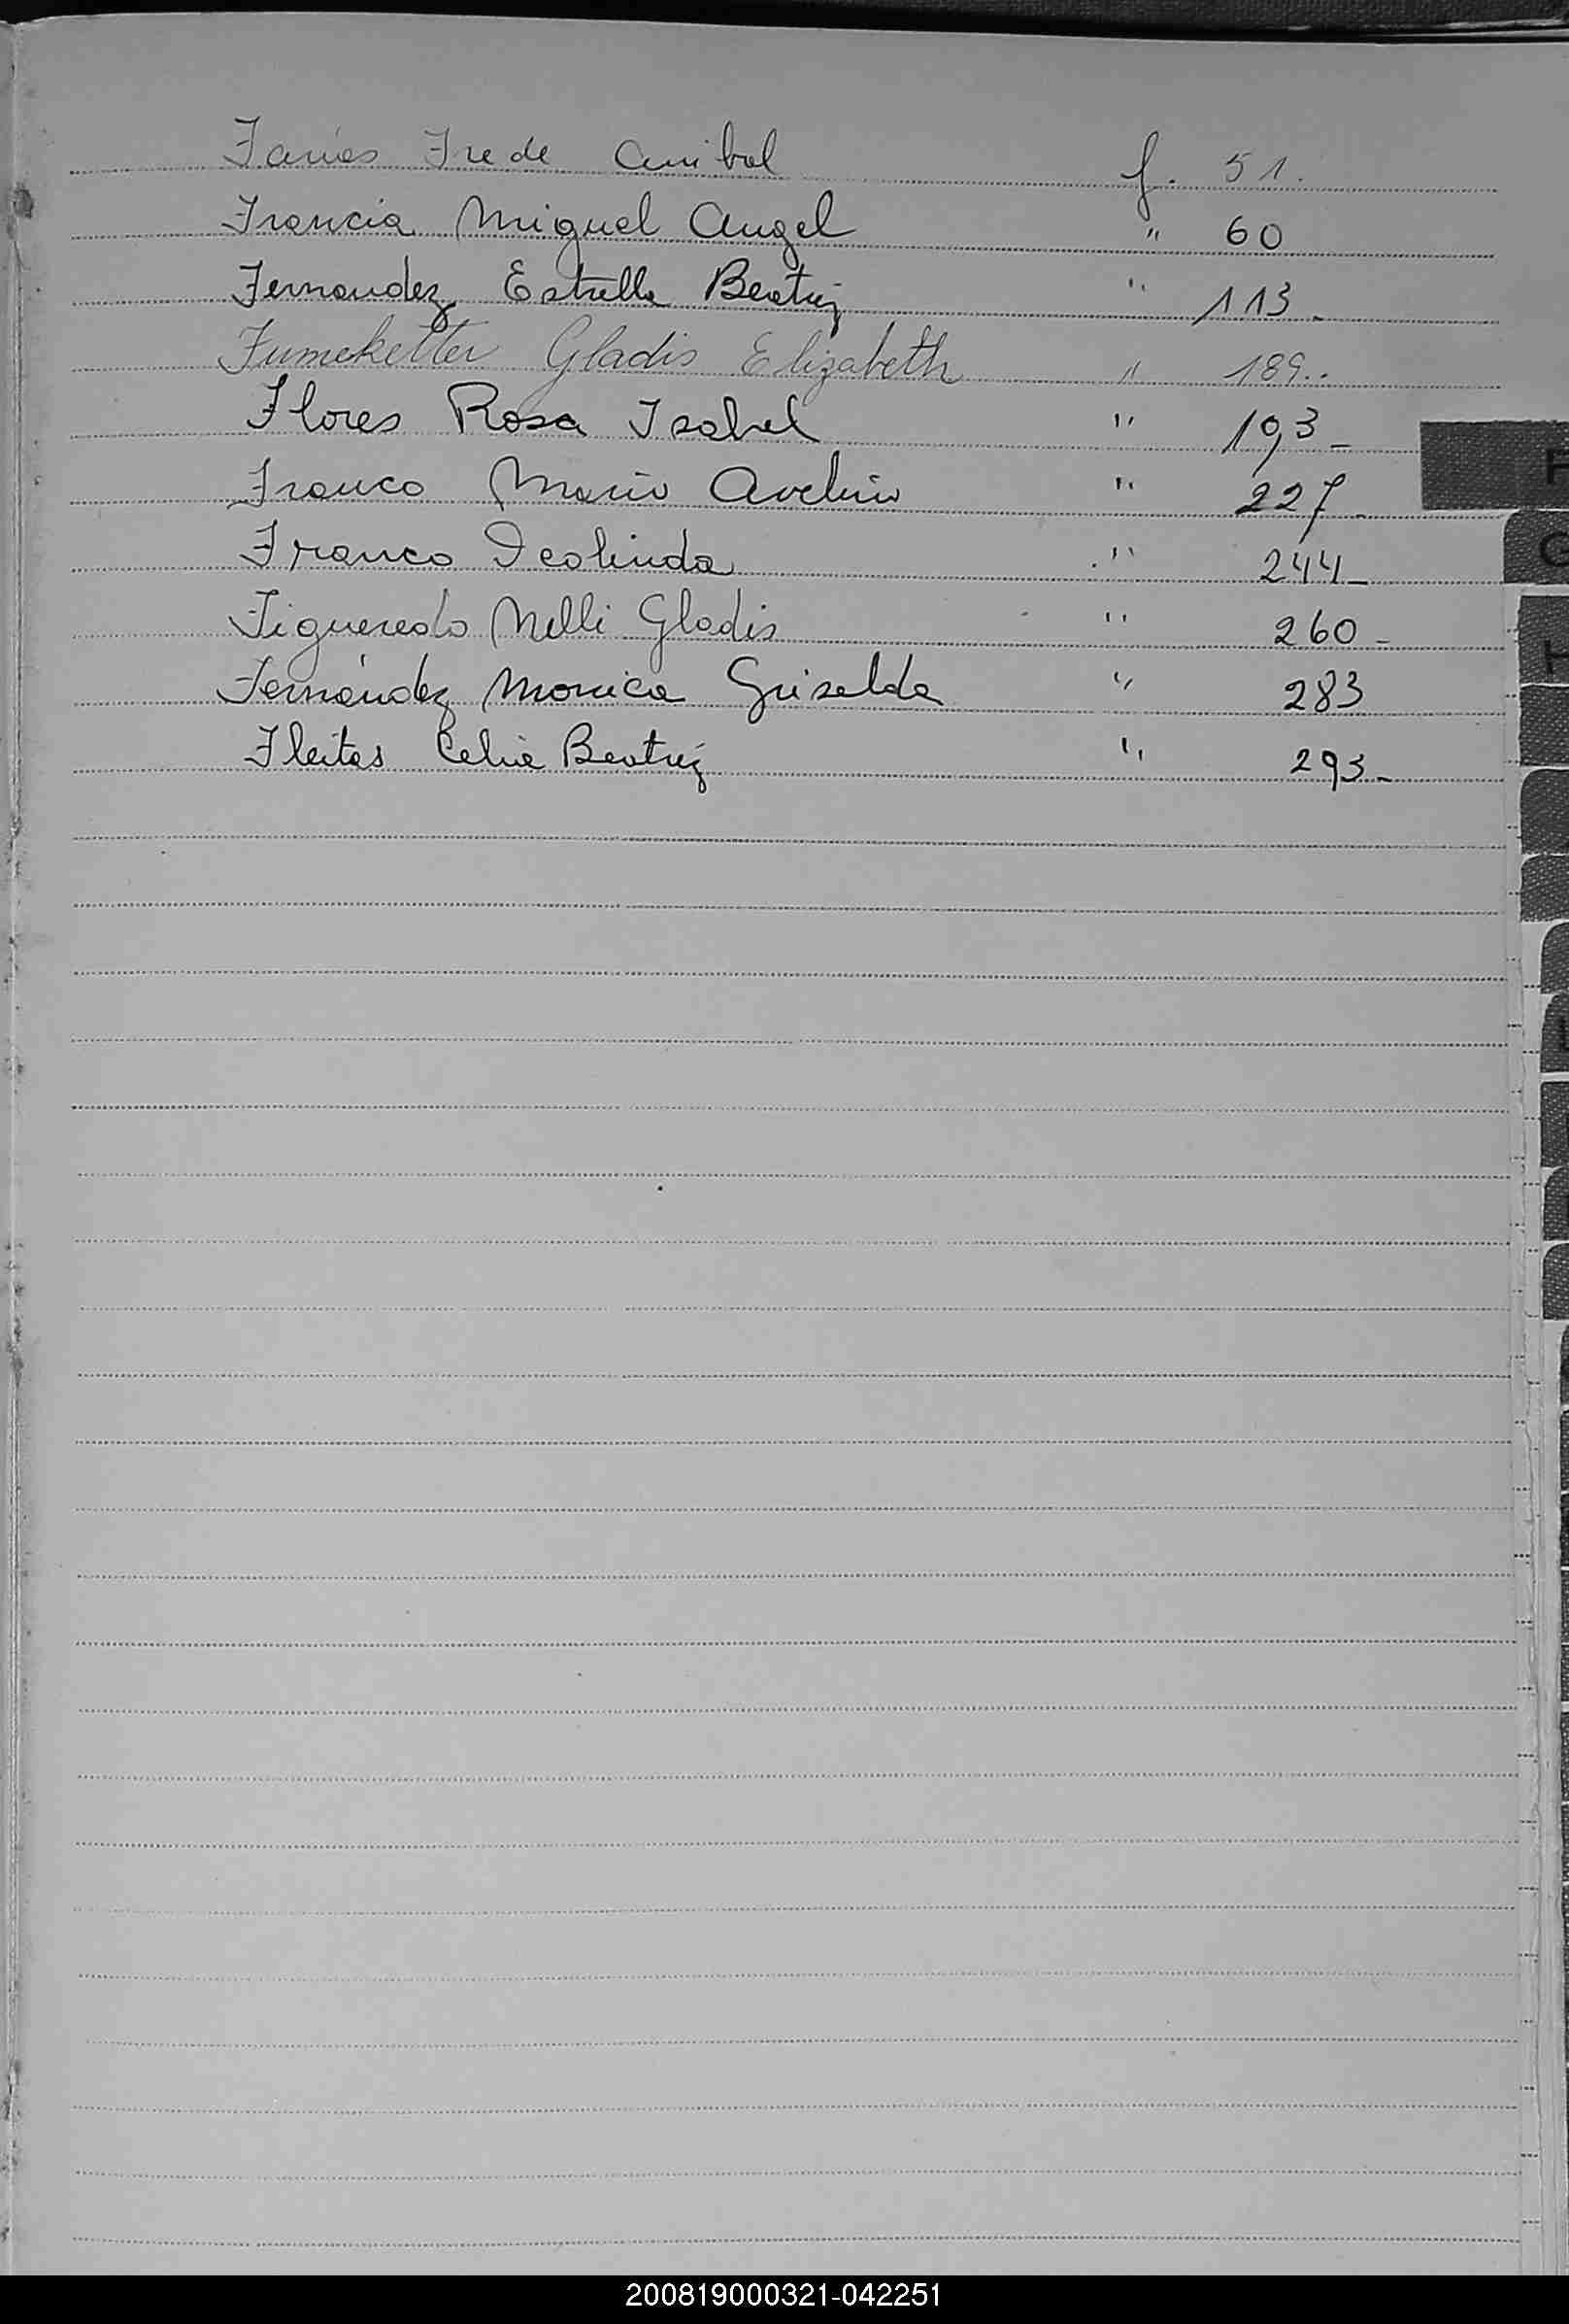 Farias Frede Anibal f. 51.
Francia Miguel Angel " 60
Fernandez Estrella Beatriz " 113 -
Fumeketter Gladis Elizabeth " 189..
Flores Rosa Isabel " 193 -
Franco Mario Avelino " 227 -
Franco Deolinda " 244 -
Figueredo Nelli Gladis " 260 -
Fernández Monica Griselda " 283
Fleitas Celia Beatriz " 293 -
F
G
H
L
200819000321-042251